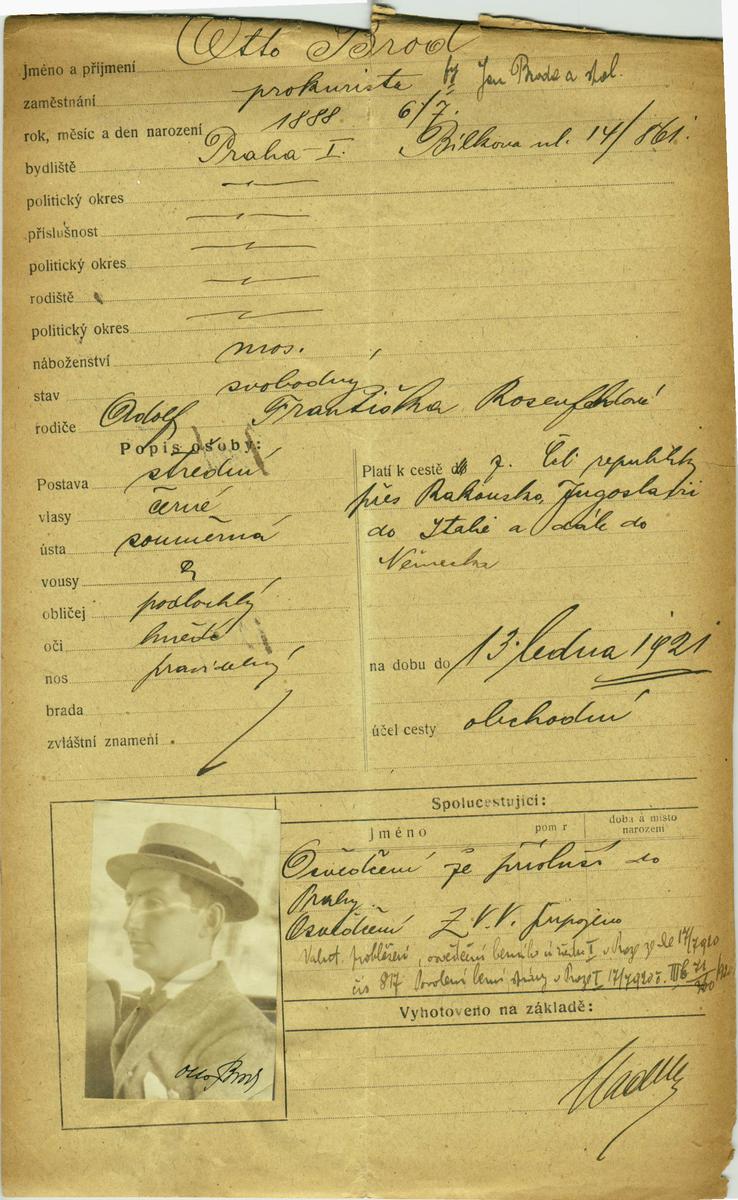 Jméno a příjmení Otto Brod
zaměstnání prokurista fy Jan Brod a spol.
rok, měsíc a den narození 1888 6/7.
bydliště Praha I. Bílkova ul. 14/861.
politický okres
příslušnost
politický okres
rodiště
politický okres
náboženství mos.
stav svobodný
rodiče Adolf Františka Rosenfeldová
Popis osoby:
Postava střední
vlasy černé
ústa souměrná
vousy
obličej podlouhlý
oči hnědé
nos pravidelný
brada
zvláštní znamení
Platí k cestě z Čsl republiky
přes Rakousko, Jugoslavii
do Italie a dále do
Německa
na dobu do 13. ledna 1921
účel cesty obchodní
Spolucestující:
jméno pom r doba a místo narození
Osvědčení že přísluší do
Prahy.
Osvědčení Z.V.V. připojeno
osvědčení berního úřadu I. v Praze ze de 17/7 920
čís 817 Povolení berní správy v Praze I 17/7 920
Vyhotoveno na základě:
Otto Brod